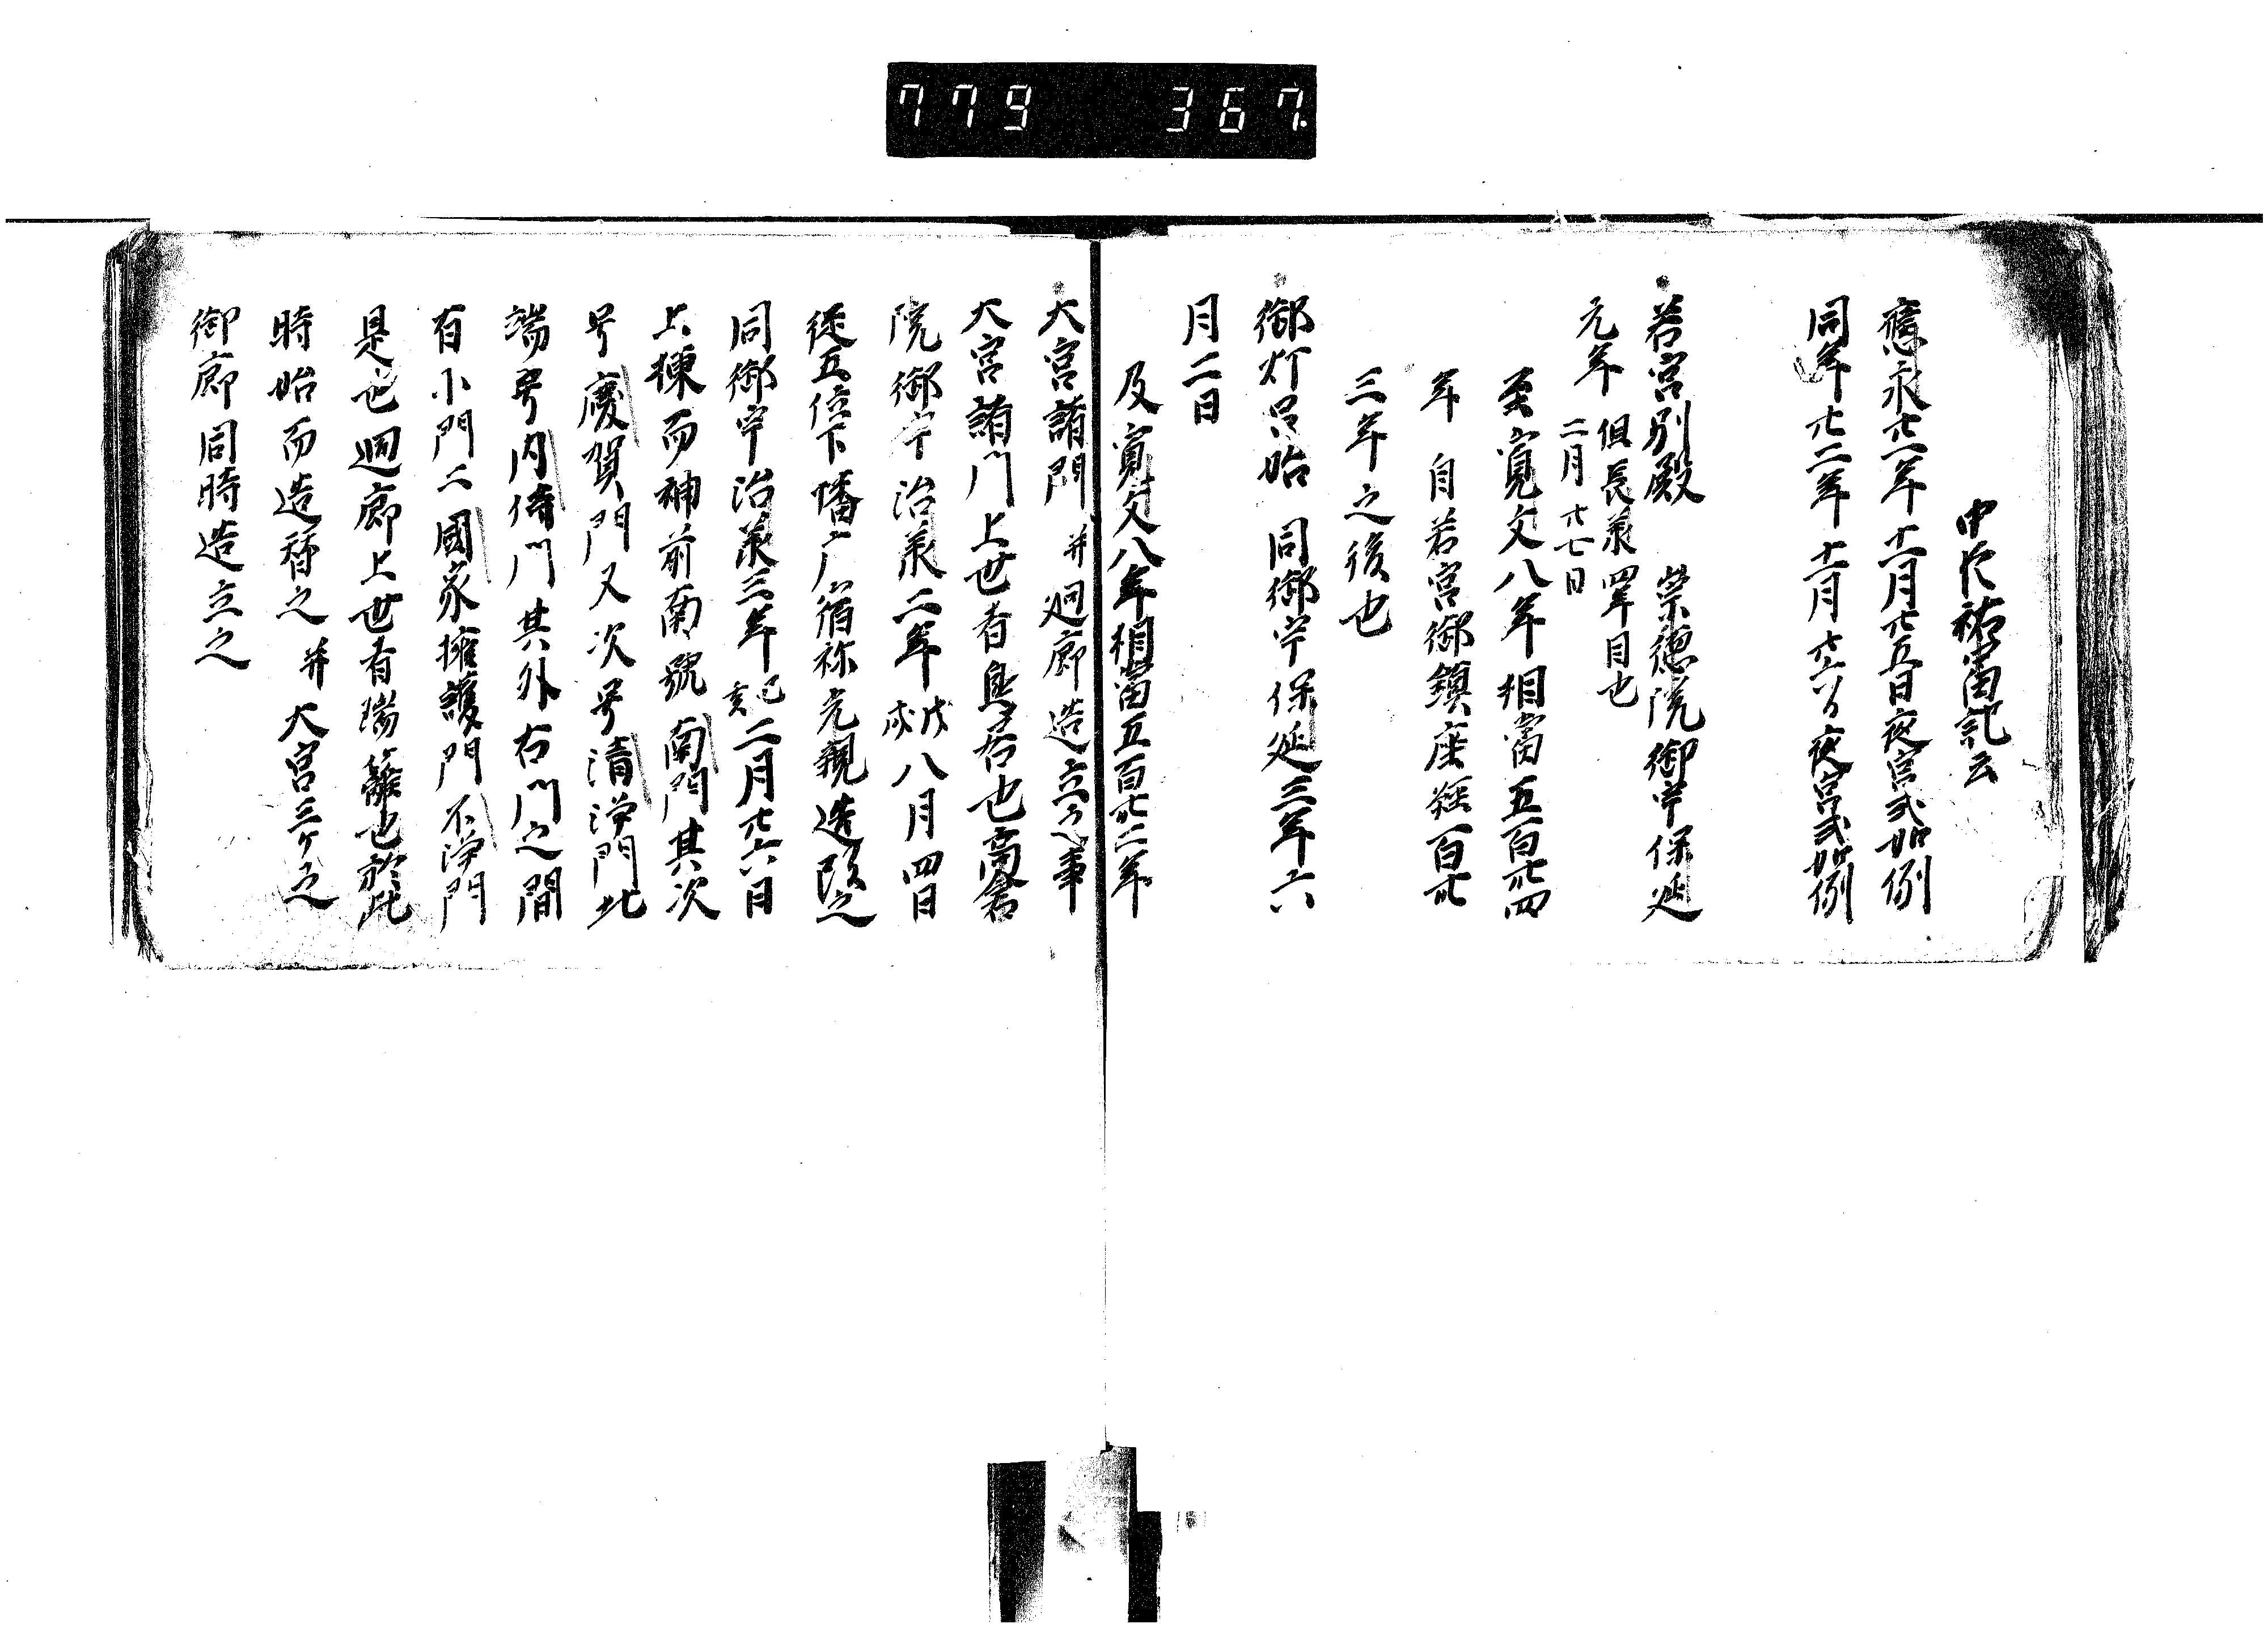 779 367
中臣祐富記云
應永廿一年十一月廿五日夜宮式如例
同年廿二年十一月廿六日夜宮式如例
若宮別殿 崇徳院御宇保延
元年 但長承四年目也
二月廿七日
至寛文八年相當五百卅四
年 自若宮御鎮座経百卅
三年之後也
御灯呂始 同御宇保延三年六
月二日
及寛文八年相當五百卅二年
大宮諸門并廻廊造立之事
大宮諸門上世者鳥居也高倉
院御宇治承二年戊戌八月四日
従五位下播广宿祢光親造改之
同御宇治承三年己亥二月廿六日
上棟而神前南號南門其次
号慶賀門又次号清浄門北
端号内侍門其外右門之間
有小門二國家擁護門不浄門
是也廻廊上世有瑞籬也於此
時始而造替之并大宮三ケ之
御廊同時造立之